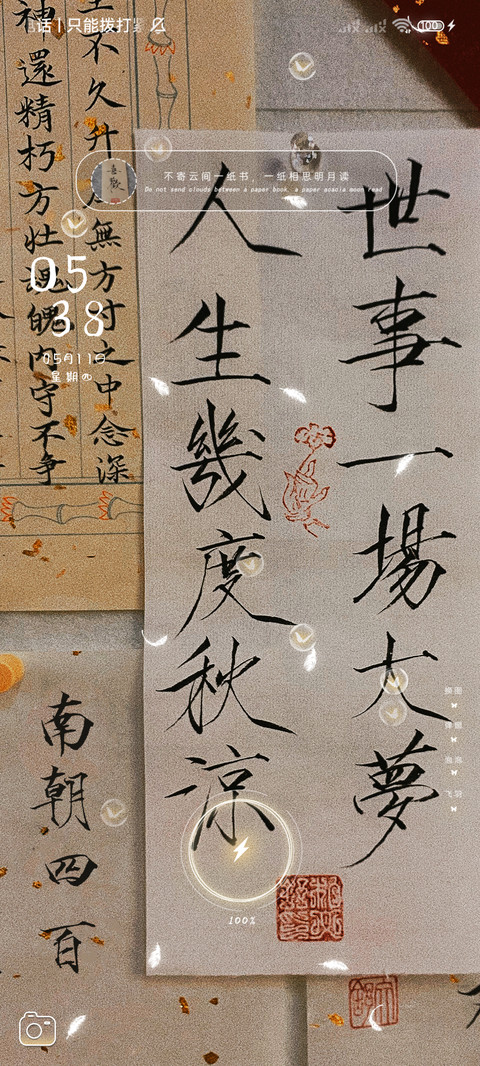 话 | 只能拨打紧
100
不寄云间一纸书，一纸相思明月读
Do not send clouds between a paper book, a paper acacia moon read
05
38
05月11日
星期四
世事一場大夢
人生幾度秋涼
不久升
無方寸之中念深
神還精朽方壮
魄内守不争
南朝四百
换图
降燥
泡泡
飞羽
100%